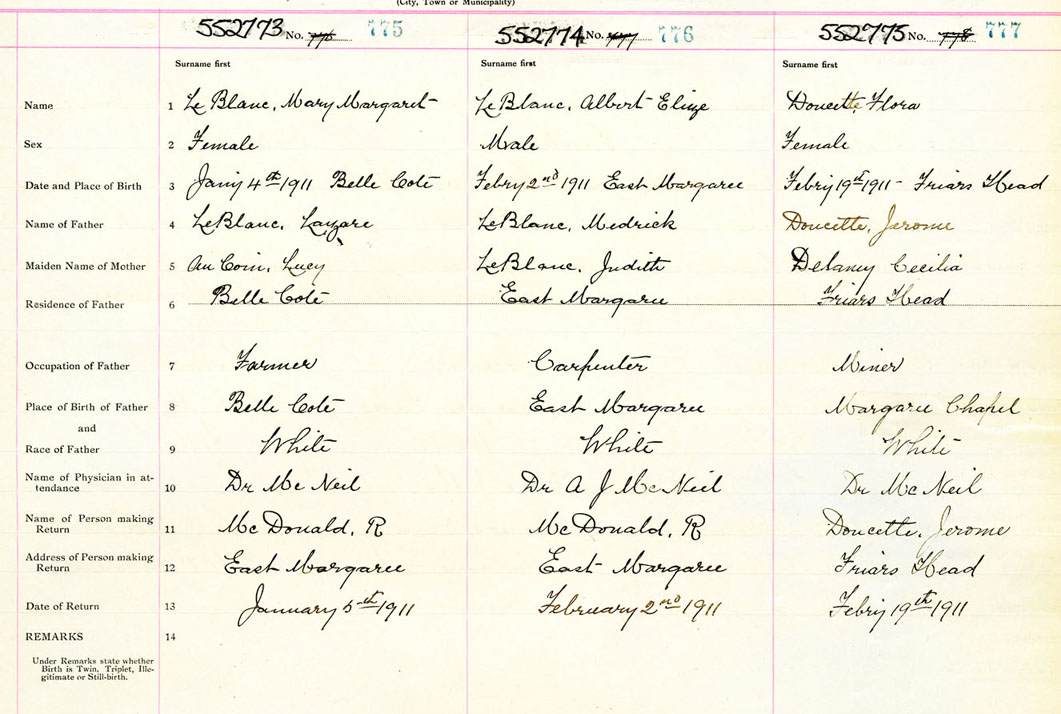 (City, Town or Municipality)
552773 No. 776 775 552774 No. 777 776 552775 No. 778 777
Surname first Surname first Surname first
Name 1 Le Blanc, Mary Margaret LeBlanc, Albert Elize Doucette, Flora
Sex 2 Female Male Female
Date and Place of Birth 3 Jany 4th 1911 Belle Cote Febry 2nd 1911 East Margaree Febry 19th 1911 - Friars Head
Name of Father 4 LeBlanc, Lazare LeBlanc, Medrick Doucette, Jerome
Maiden Name of Mother 5 Au Coin, Lucy LeBlanc, Judith Delaney Cecilia
Residence of Father 6 Belle Cote East Margaree Friars Head
Occupation of Father 7 Farmer Carpenter Miner
Place of Birth of Father 8 Belle Cote East Margaree Margaree Chapel
and
Race of Father 9 White White White
Name of Physician in at-
tendance 10 Dr Mc Neil Dr A J McNeil Dr McNeil
Name of Person making
Return 11 Mc Donald, R Mc Donald, R Doucette, Jerome
Address of Person making
Return 12 East Margaree East Margaree Friars Head
Date of Return 13 January 5th 1911 February 2nd 1911 Febry 19th 1911
REMARKS 14
Under Remarks state whether
Birth is Twin, Triplet, Ille-
gitimate or Still-birth.